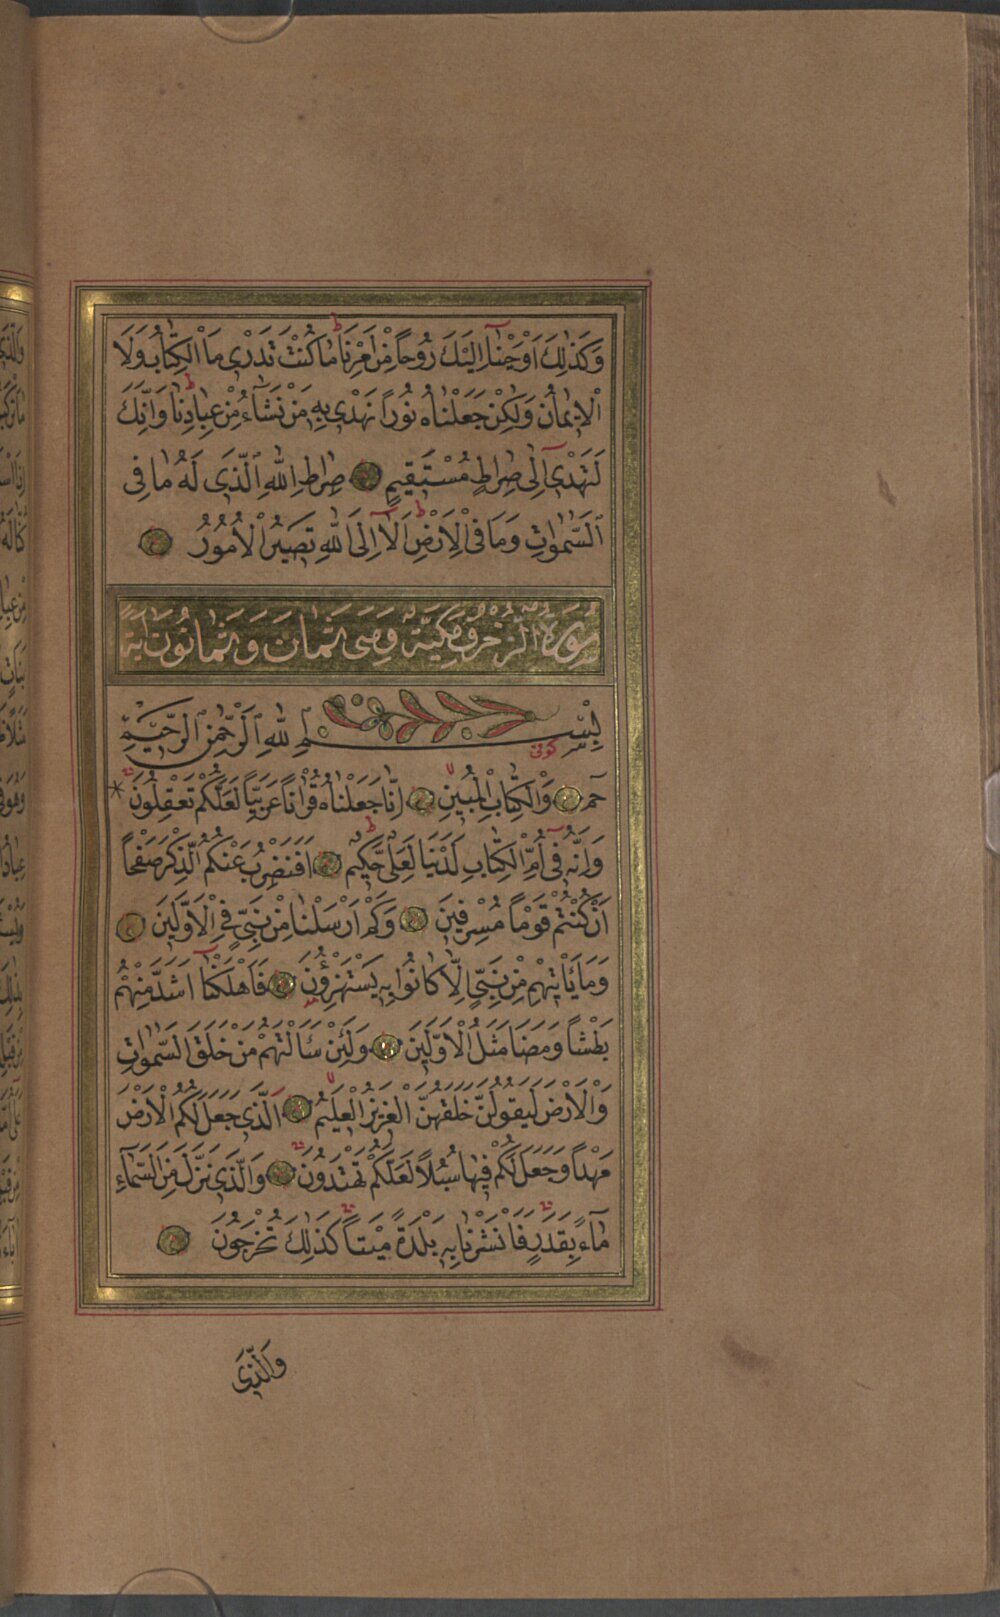 وَكَذٰلِكَ اَوْحَيْنَٓا اِلَيْكَ رُوحًا مِنْ اَمْرِنَا مَا كُنْتَ تَدْرٖى مَا الْكِتَابُ وَلَا
الْاٖيمَانُ وَلٰكِنْ جَعَلْنَاهُ نُورًا نَهْدٖى بِهٖ مَنْ نَشَٓاءُ مِنْ عِبَادِنَا وَاِنَّكَ
لَتَهْدٖٓى اِلٰى صِرَاطٍ مُسْتَقٖيمٍ صِرَاطِ اللّٰهِ الَّذٖى لَهُ مَا فِى
السَّمٰوَاتِ وَمَا فِى الْاَرْضِ اَلَٓا اِلَى اللّٰهِ تَصٖيرُ الْاُمُورُ
سُورَةُ الزُّخْرُفِ مَكِّيَّةٌ وَهِىَ ثَمَانَ وَثَمَانُونَ اٰيَةً
بِسْمِ اللّٰهِ الرَّحْمٰنِ الرَّحٖيمِ
كوفى
حٰمٓ وَالْكِتَابِ الْمُبٖينِ اِنَّا جَعَلْنَاهُ قُرْاٰنًا عَرَبِيًّا لَعَلَّكُمْ تَعْقِلُونَ
وَاِنَّهُ فٖٓى اُمِّ الْكِتَابِ لَدَيْنَا لَعَلِىٌّ حَكٖيمٌ اَفَنَضْرِبُ عَنْكُمُ الذِّكْرَ صَفْحًا
اَنْ كُنْتُمْ قَوْمًا مُسْرِفٖينَ وَكَمْ اَرْسَلْنَا مِنْ نَبِىٍّ فِى الْاَوَّلٖينَ
وَمَا يَاْتٖيهِمْ مِنْ نَبِىٍّ اِلَّا كَانُوا بِهٖ يَسْتَهْزِؤُنَ فَاَهْلَكْنَٓا اَشَدَّ مِنْهُمْ
بَطْشًا وَمَضٰا مَثَلُ الْاَوَّلٖينَ وَلَئِنْ سَاَلْتَهُمْ مَنْ خَلَقَ السَّمٰوَاتِ
وَالْاَرْضَ لَيَقُولُنَّ خَلَقَهُنَّ الْعَزٖيزُ الْعَلٖيمُ اَلَّذٖى جَعَلَ لَكُمُ الْاَرْضَ
مَهْدًا وَجَعَلَ لَكُمْ فٖيهَا سُبُلًا لَعَلَّكُمْ تَهْتَدُونَ وَالَّذٖى نَزَّلَ مِنَ السَّمَٓاءِ
مَٓاءً بِقَدَرٍ فَاَنْشَرْنَا بِهٖ بَلْدَةً مَيْتًا كَذٰلِكَ تُخْرَجُونَ
وَالَّذٖى